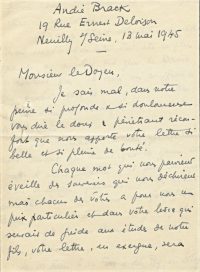 André Brack
19 Rue Ernest Deloison
Neuilly s/Seine, 13 mai 1945
Monsieur le Doyen,
Je sais mal, dans notre
peine si profonde et si douloureuse
vous dire le doux et pénétrant récon-
fort que nous apporte votre lettre si
belle et si pleine de bonté.
Chaque mot qui nous parvient
éveille des souvenirs qui nous déchirent
mais chacun des vôtres a pour nous un
prix particulier et dans votre livre qui
servait de guide aux études de notre
fils, votre lettre, en exergue, sera